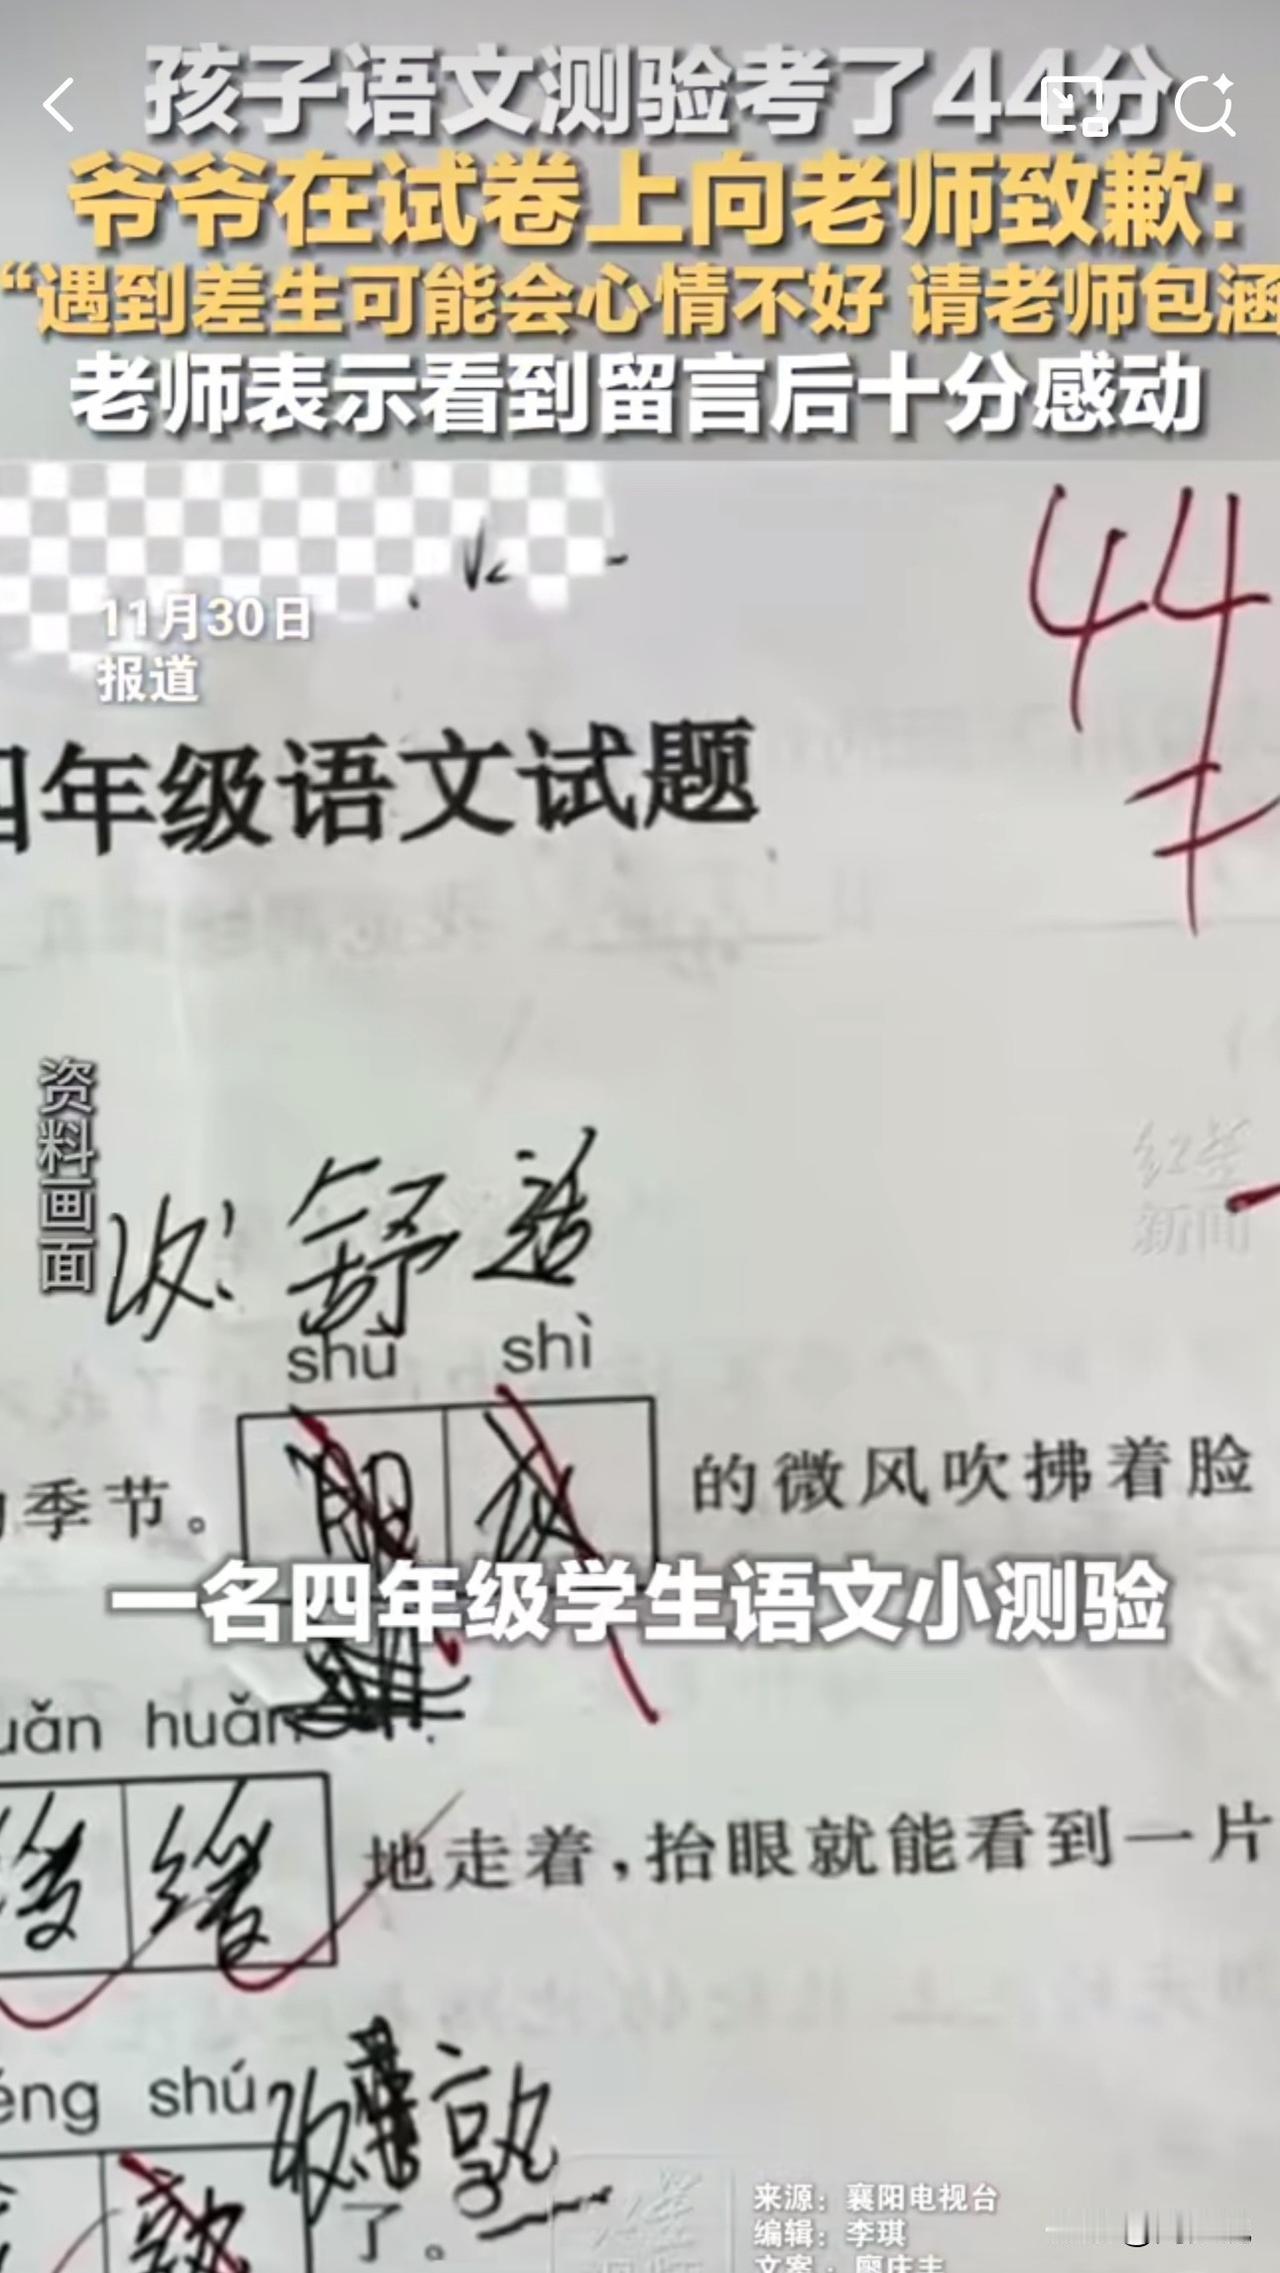 孩子语文测验考了44分
爷爷在试卷上向老师致歉:
“遇到差生可能会心情不好 请老师包涵
老师表示看到留言后十分感动
44
11月30日
报道
四年级语文试题
资料画面
红星
新闻
改: 舒适
shū shì
季节。
的微风吹拂着脸
一名四年级学生语文小测验
uǎn huǎn
缓 缓
地走着,抬眼就能看到一片
éng shú
改
熟
了。
来源:襄阳电视台
编辑:李琪
文案:廖庆丰